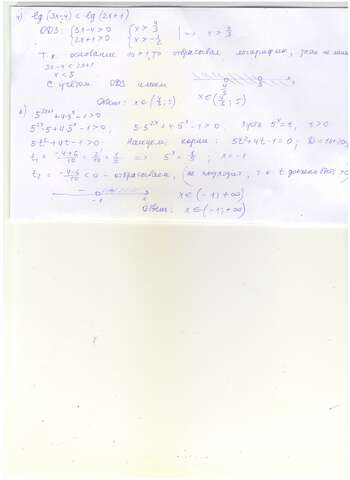 1) lg(3x-4) < lg(2x+1)
ОДЗ: {3x-4>0 {x>4/3 => x>4/3
{2x+1>0 {x>-1/2
Т.к. основание 10>1, то отбрасывая логарифмы, знак не
3x-4<2x+1
x<5
С учетом ОДЗ имеем x∈(4/3; 5)
Ответ: x∈(4/3; 5)
5^(2x+1)+4·5^x-1>0
5^(2x)·5+4·5^x-1>0, 5·5^(2x)+4·5^x-1>0. Пусть 5^x=t, t>0
5t²+4t-1>0; Найдем корни: 5t²+4t-1=0;
t₁ = (-4+6)/10 = 2/10 = 1/5 => 5^x = 1/5; x=-1
t₂ = (-4-6)/10 < 0 - отбрасываем, (не подходит, т.к. t должно быть >0)
-1 x∈(-1; +∞)
Ответ: x∈(-1; +∞)